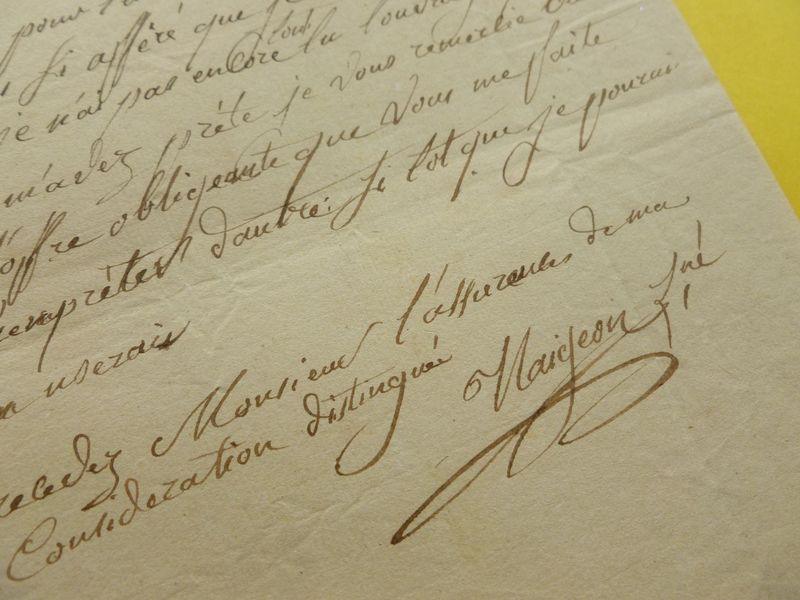 pour l
si affairé que je
tout
je n'ai pas encore lu
m'avez prété je vous remercie
offre obligeante que vous me faite
d'autre si tot que je pourai
userais
recevez Monsieur l'assurance de ma
Consideration distinguée
Naigeon